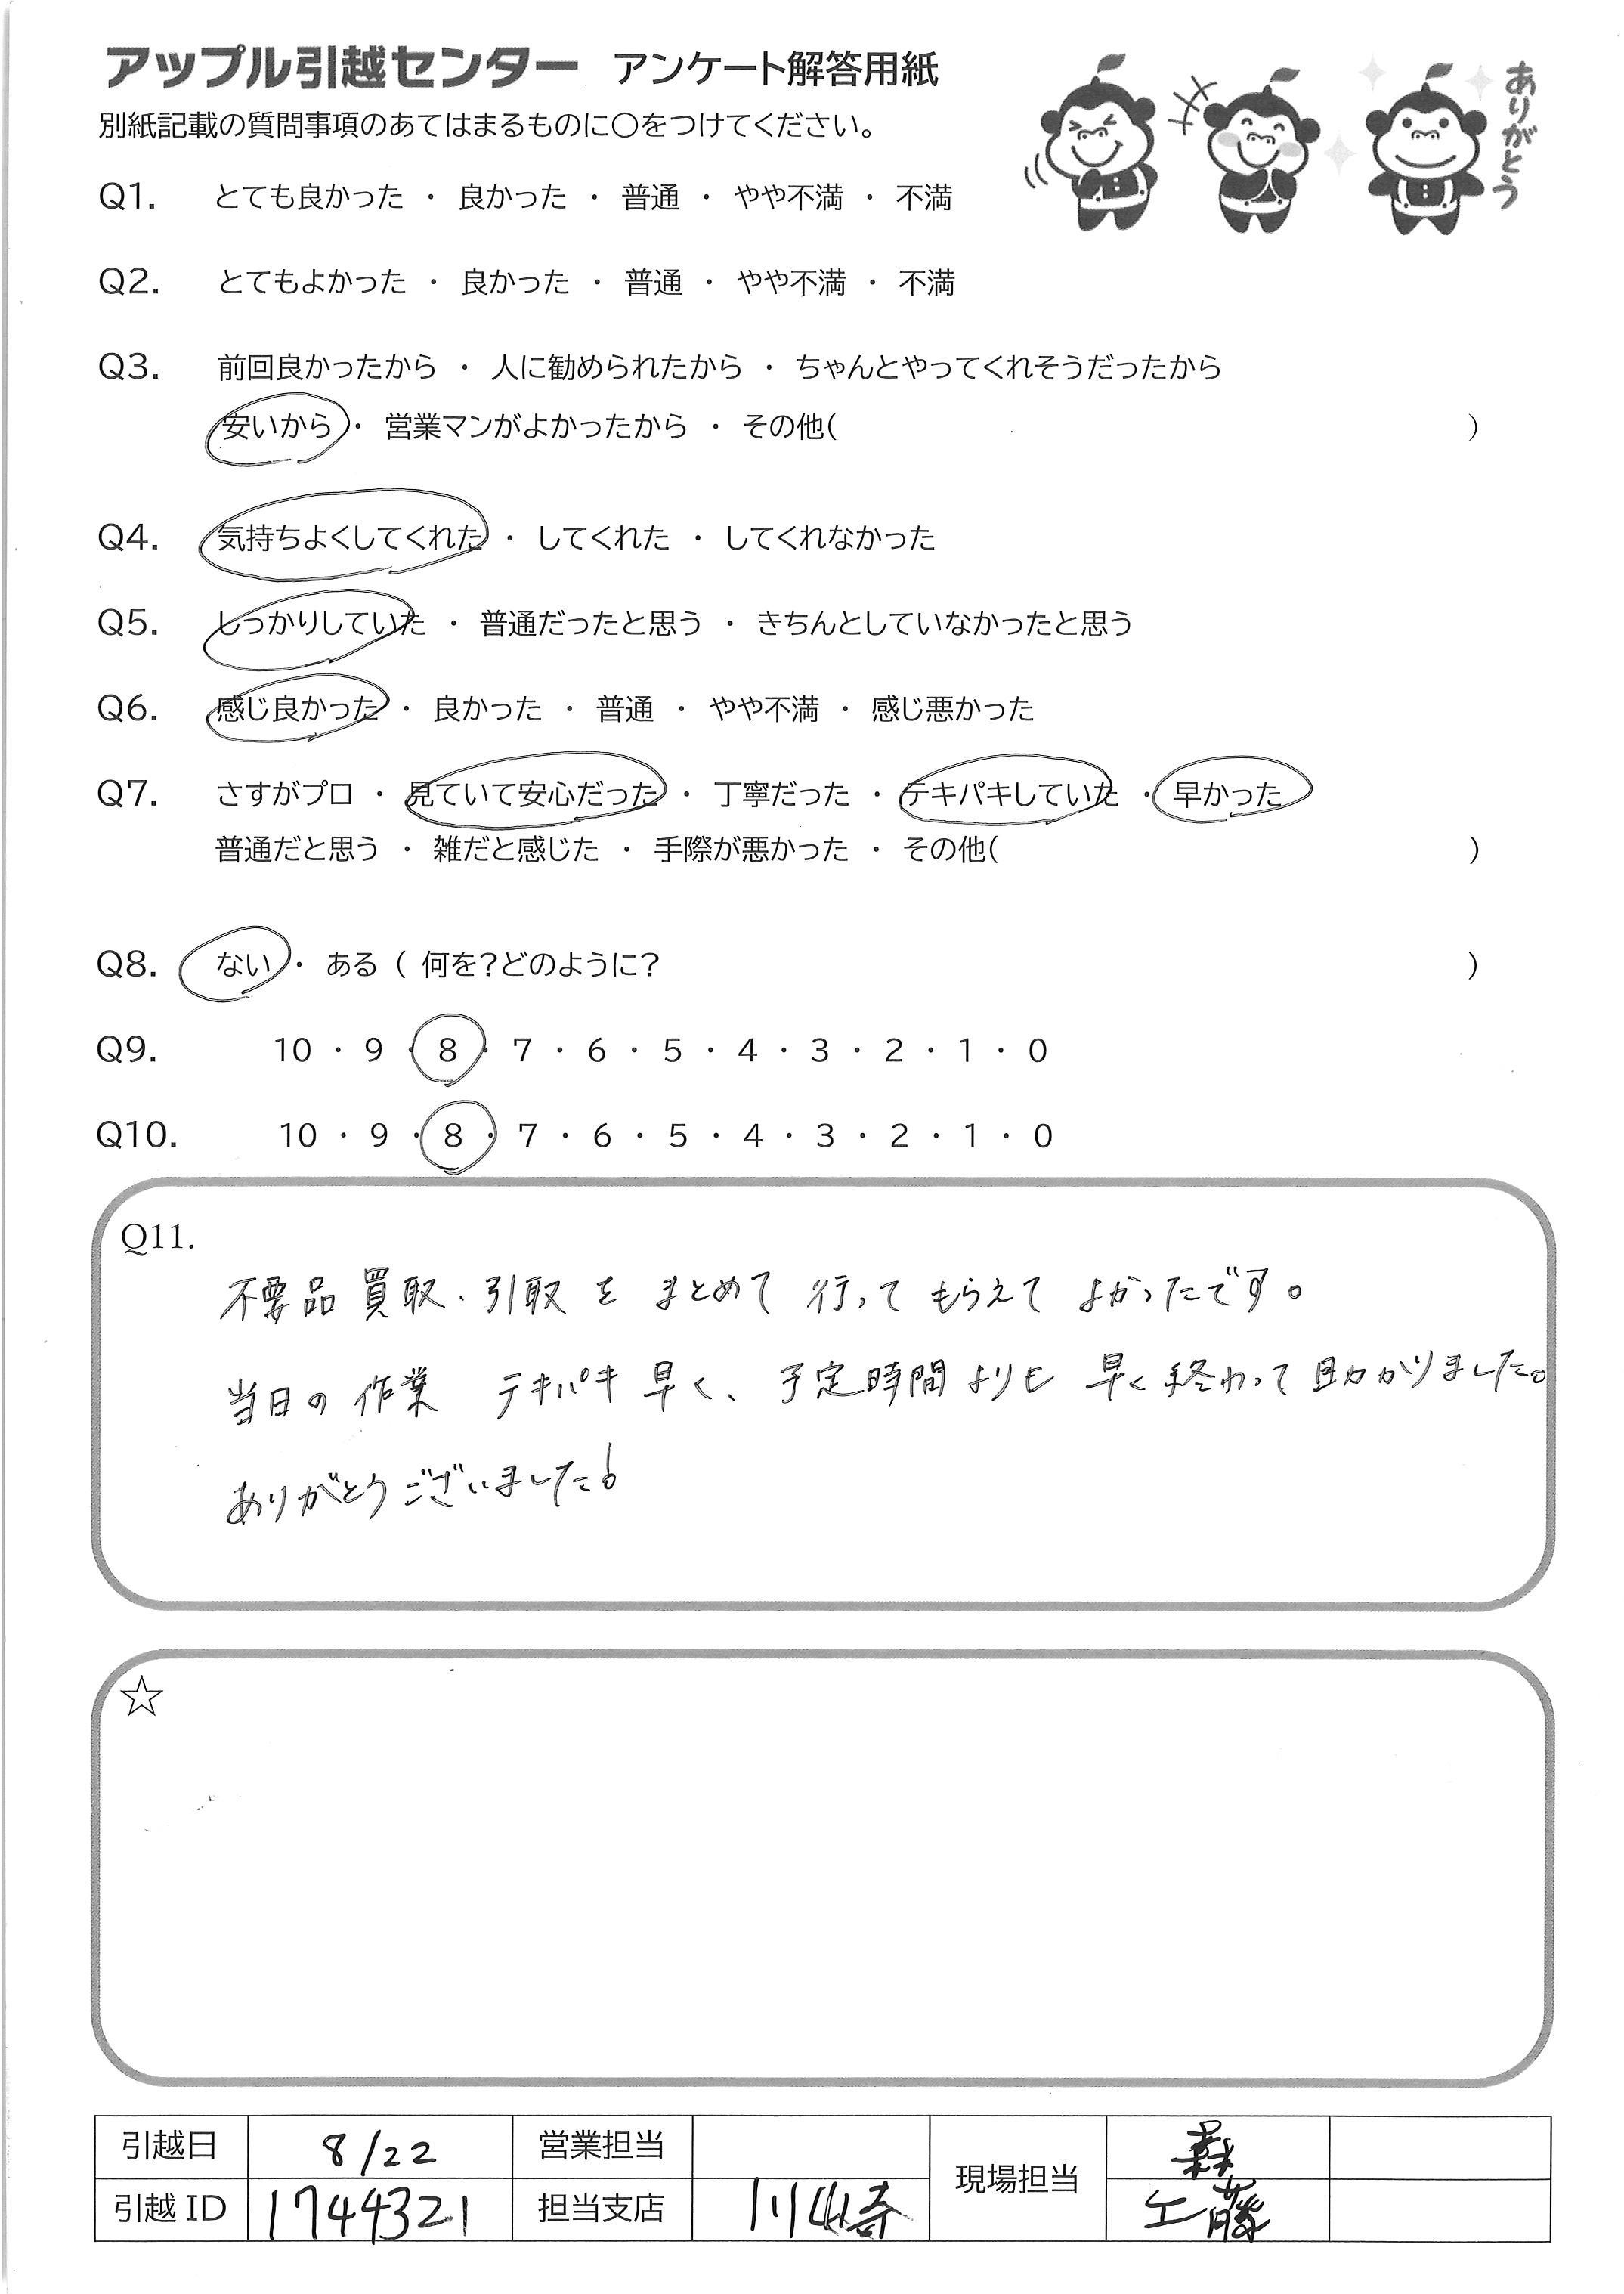 アップル引越センター アンケート解答用紙
ありがとう
別紙記載の質問事項のあてはまるものに○をつけてください。
Q1. とても良かった ・ 良かった ・ 普通 ・ やや不満 ・ 不満
Q2. とてもよかった ・ 良かった ・ 普通 ・ やや不満 ・ 不満
Q3. 前回良かったから ・ 人に勧められたから ・ ちゃんとやってくれそうだったから
安いから ・ 営業マンがよかったから ・ その他( )
Q4. 気持ちよくしてくれた ・ してくれた ・ してくれなかった
Q5. しっかりしていた ・ 普通だったと思う ・ きちんとしていなかったと思う
Q6. 感じ良かった ・ 良かった ・ 普通 ・ やや不満 ・ 感じ悪かった
Q7. さすがプロ ・ 見ていて安心だった ・ 丁寧だった ・ テキパキしていた ・ 早かった
普通だと思う ・ 雑だと感じた ・ 手際が悪かった ・ その他( )
Q8. ない ・ ある ( 何を?どのように? )
Q9. 10 ・ 9 ・ 8 ・ 7 ・ 6 ・ 5 ・ 4 ・ 3 ・ 2 ・ 1 ・ 0
Q10. 10 ・ 9 ・ 8 ・ 7 ・ 6 ・ 5 ・ 4 ・ 3 ・ 2 ・ 1 ・ 0
Q11.
不要品買取、引取をまとめて行ってもらえてよかったです。
当日の作業 テキパキ早く、予定時間よりも早く終わって助かりました。
ありがとうございました!
☆
引越日 8/22 営業担当 現場担当 森
引越 ID 1744321 担当支店 川崎 工藤